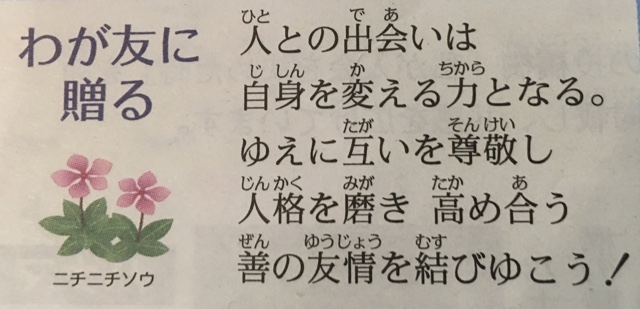 わが友に
贈る
ニチニチソウ
人との出会いは
自身を変える力となる。
ゆえに互いを尊敬し
人格を磨き 高め合う
善の友情を結びゆこう！